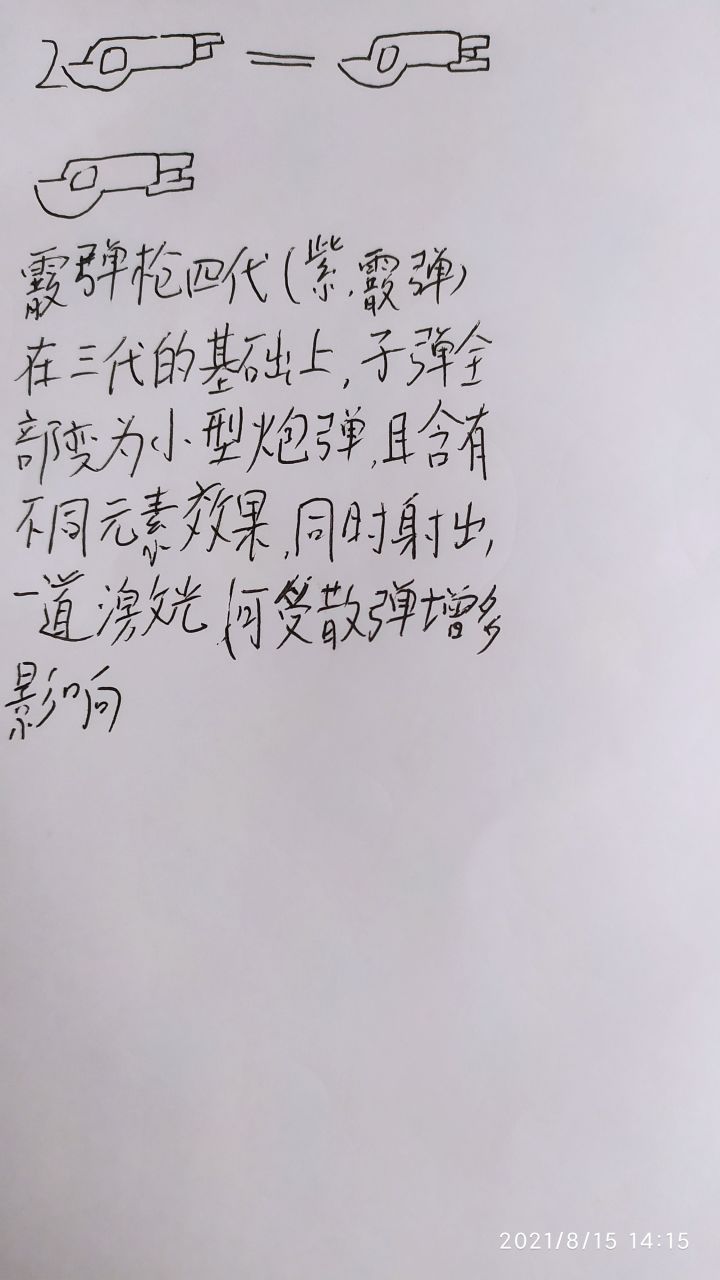 2 =
霰弹枪四代(紫,霰弹)
在三代的基础上,子弹全
部变为小型炮弹,且含有
不同元素效果,同时射出,
一道激光,可受散弹增多
影响
2021/8/15 14:15